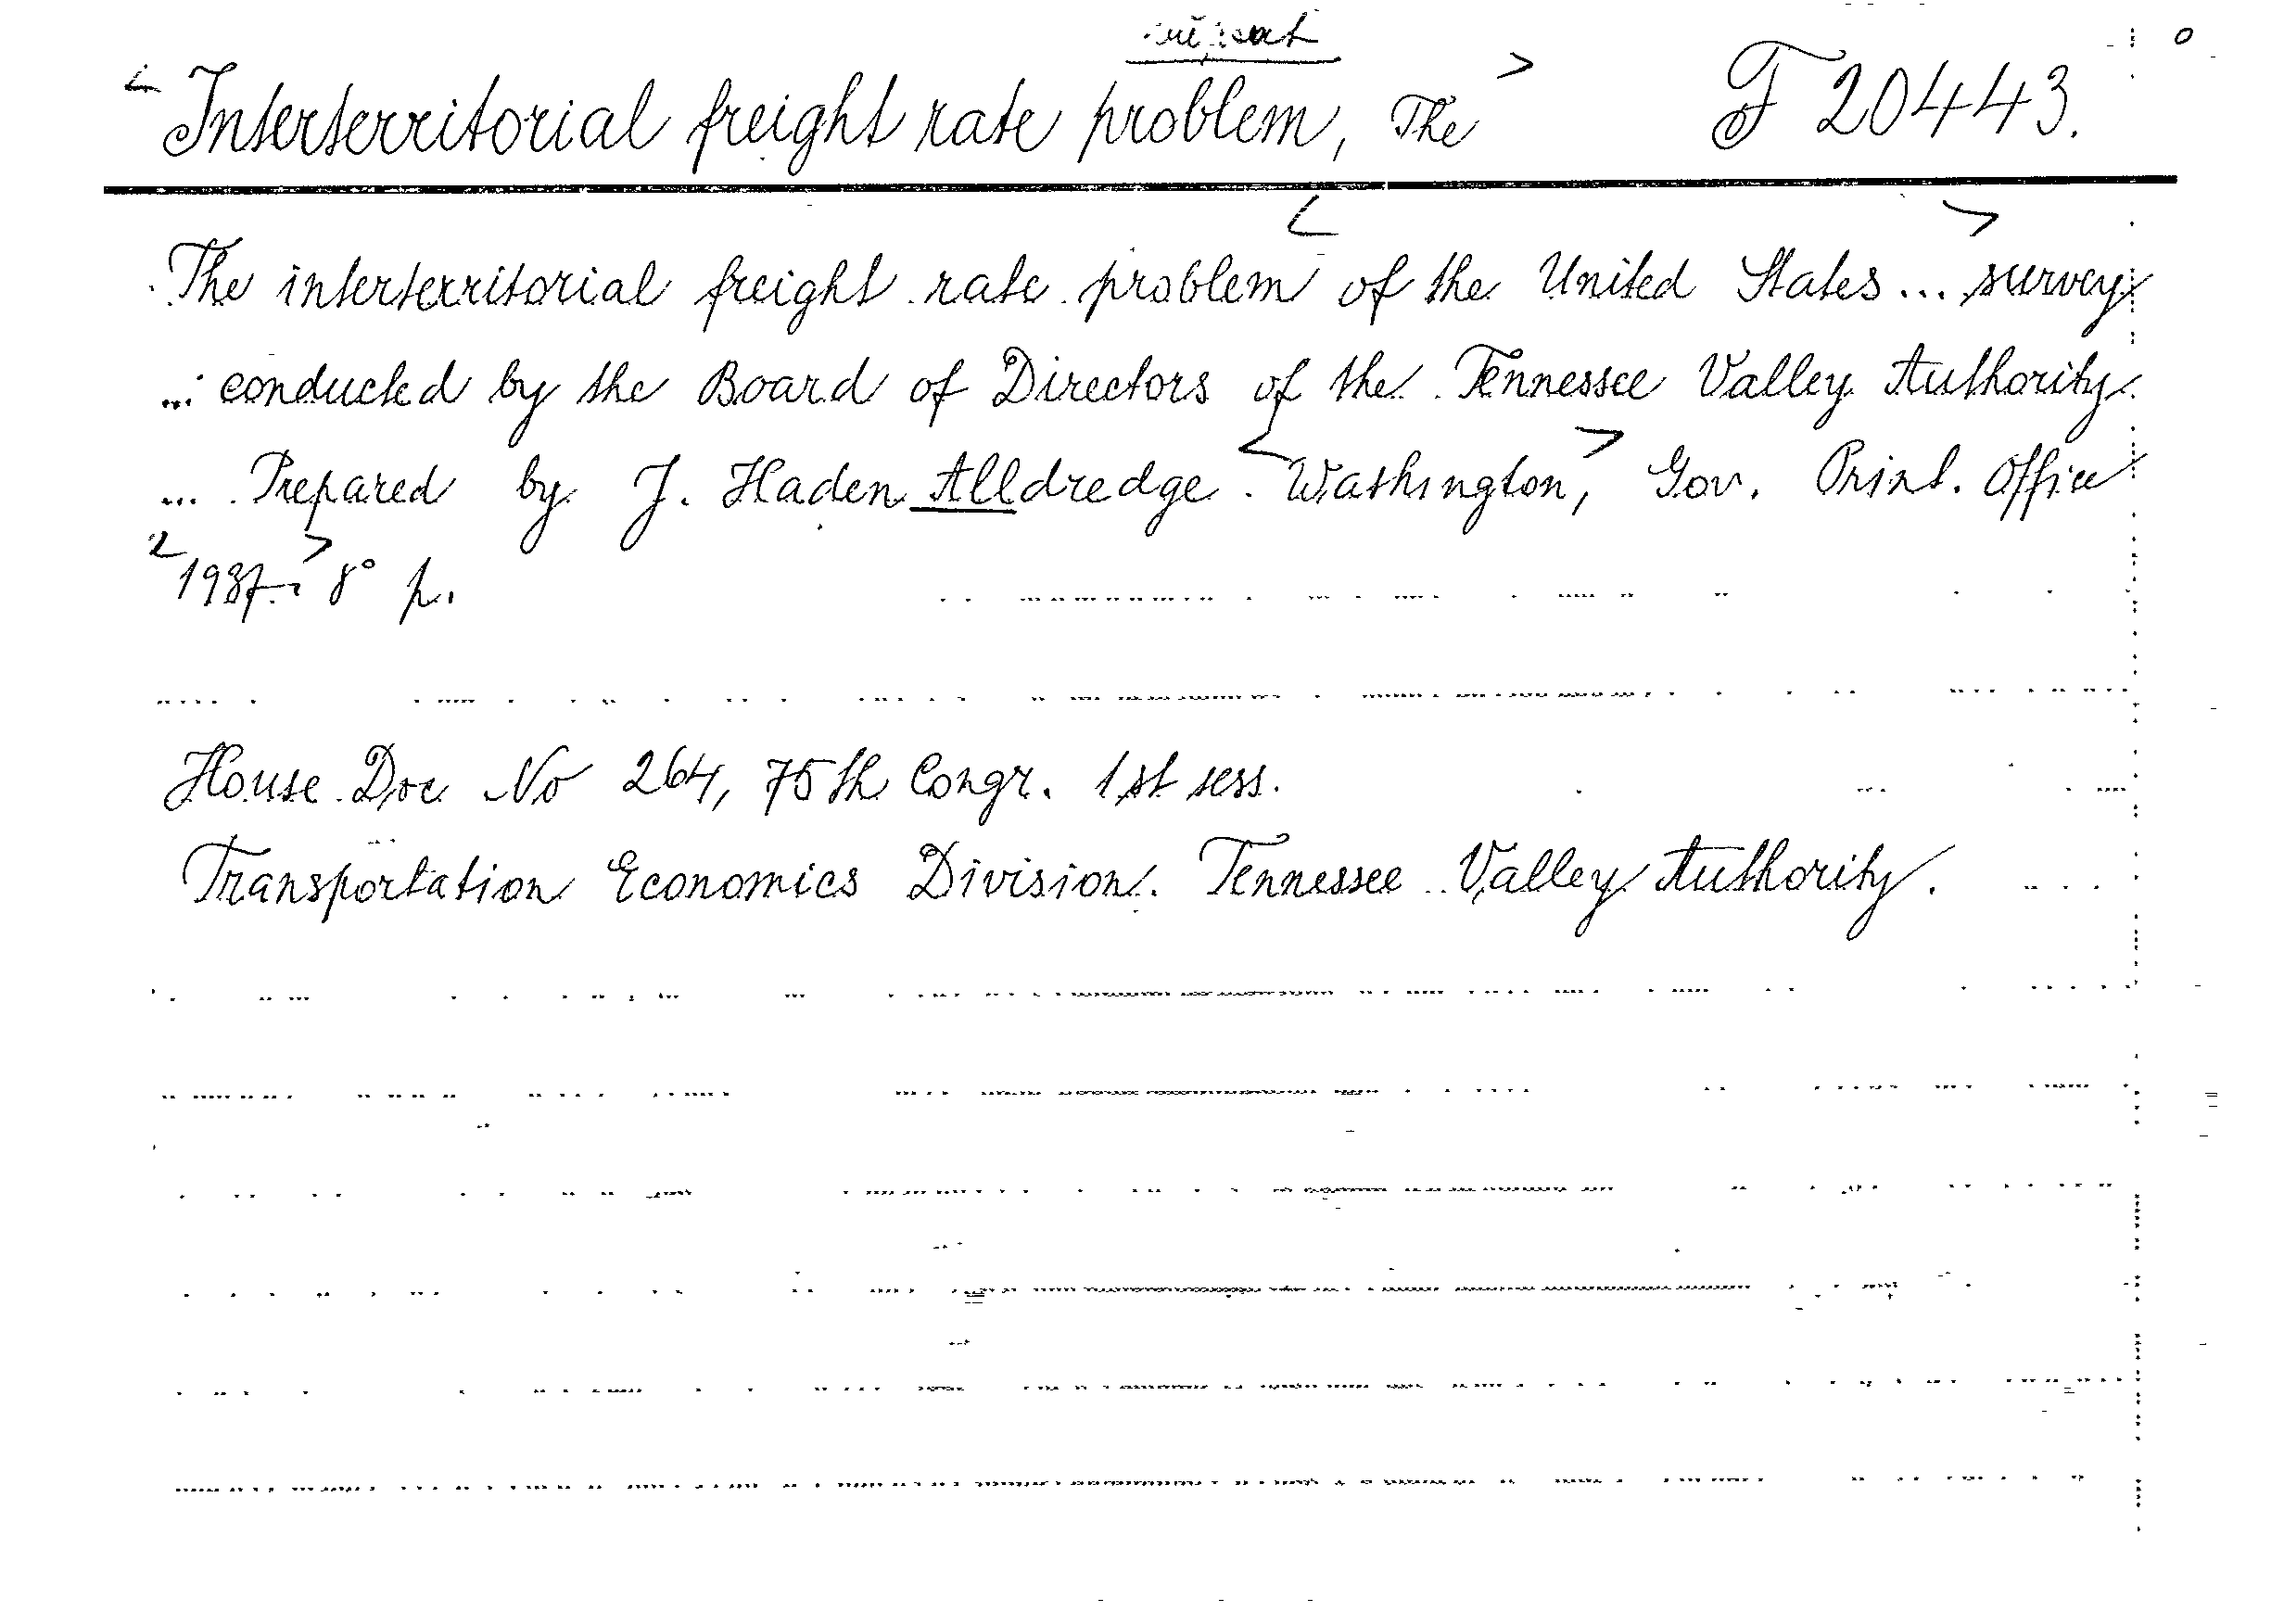 Interterritorial freight rate problem, The F 20443.
The interterritorial freight rate problem of the United States ... survey
... conducted by the Board of Directors of the Tennessee Valley Authority
... Prepared by J. Haden Alldredge. Washington, Gov. Print. Office
1937. 8° p.
House Doc No 264, 75th Congr. 1st sess.
Transportation Economics Division. Tennessee Valley Authority.